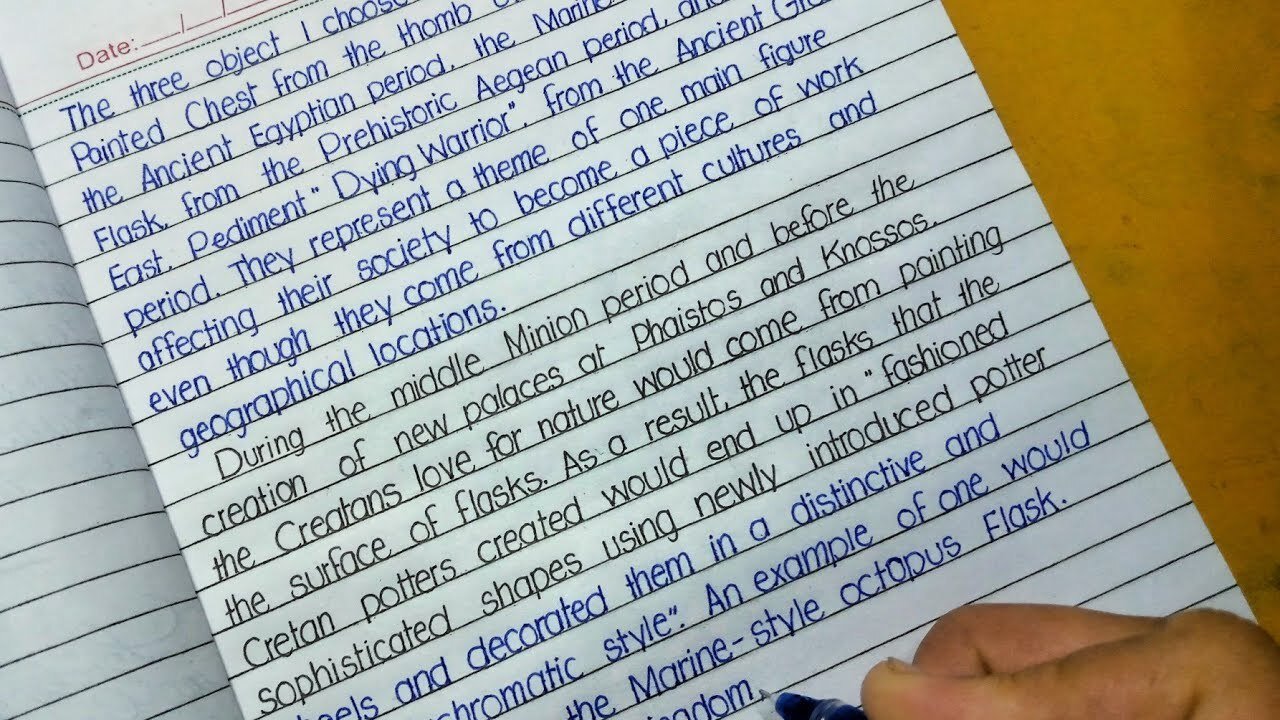 Date:
The three object I choose
Painted Chest from the thomb
the Ancient Egyptian period, the Marine
Flask, from the Prehistoric Aegean period, and
East. Pediment "Dying Warrior", from the Ancient
period. They represent a theme of one main figure
affecting their society to become a piece of work
even though they come from different cultures and
geographical locations.
During the middle Minion period and before the
creation of new palaces at Phaistos and Knossos.
the Creatans love for nature would come from painting
the surface of flasks. As a result, the flasks that the
Cretan potters created would end up in "fashioned
sophisticated shapes using newly introduced potter
and decorated them in a distinctive and
style". An example of one would
the Marine-style octopus Flask.